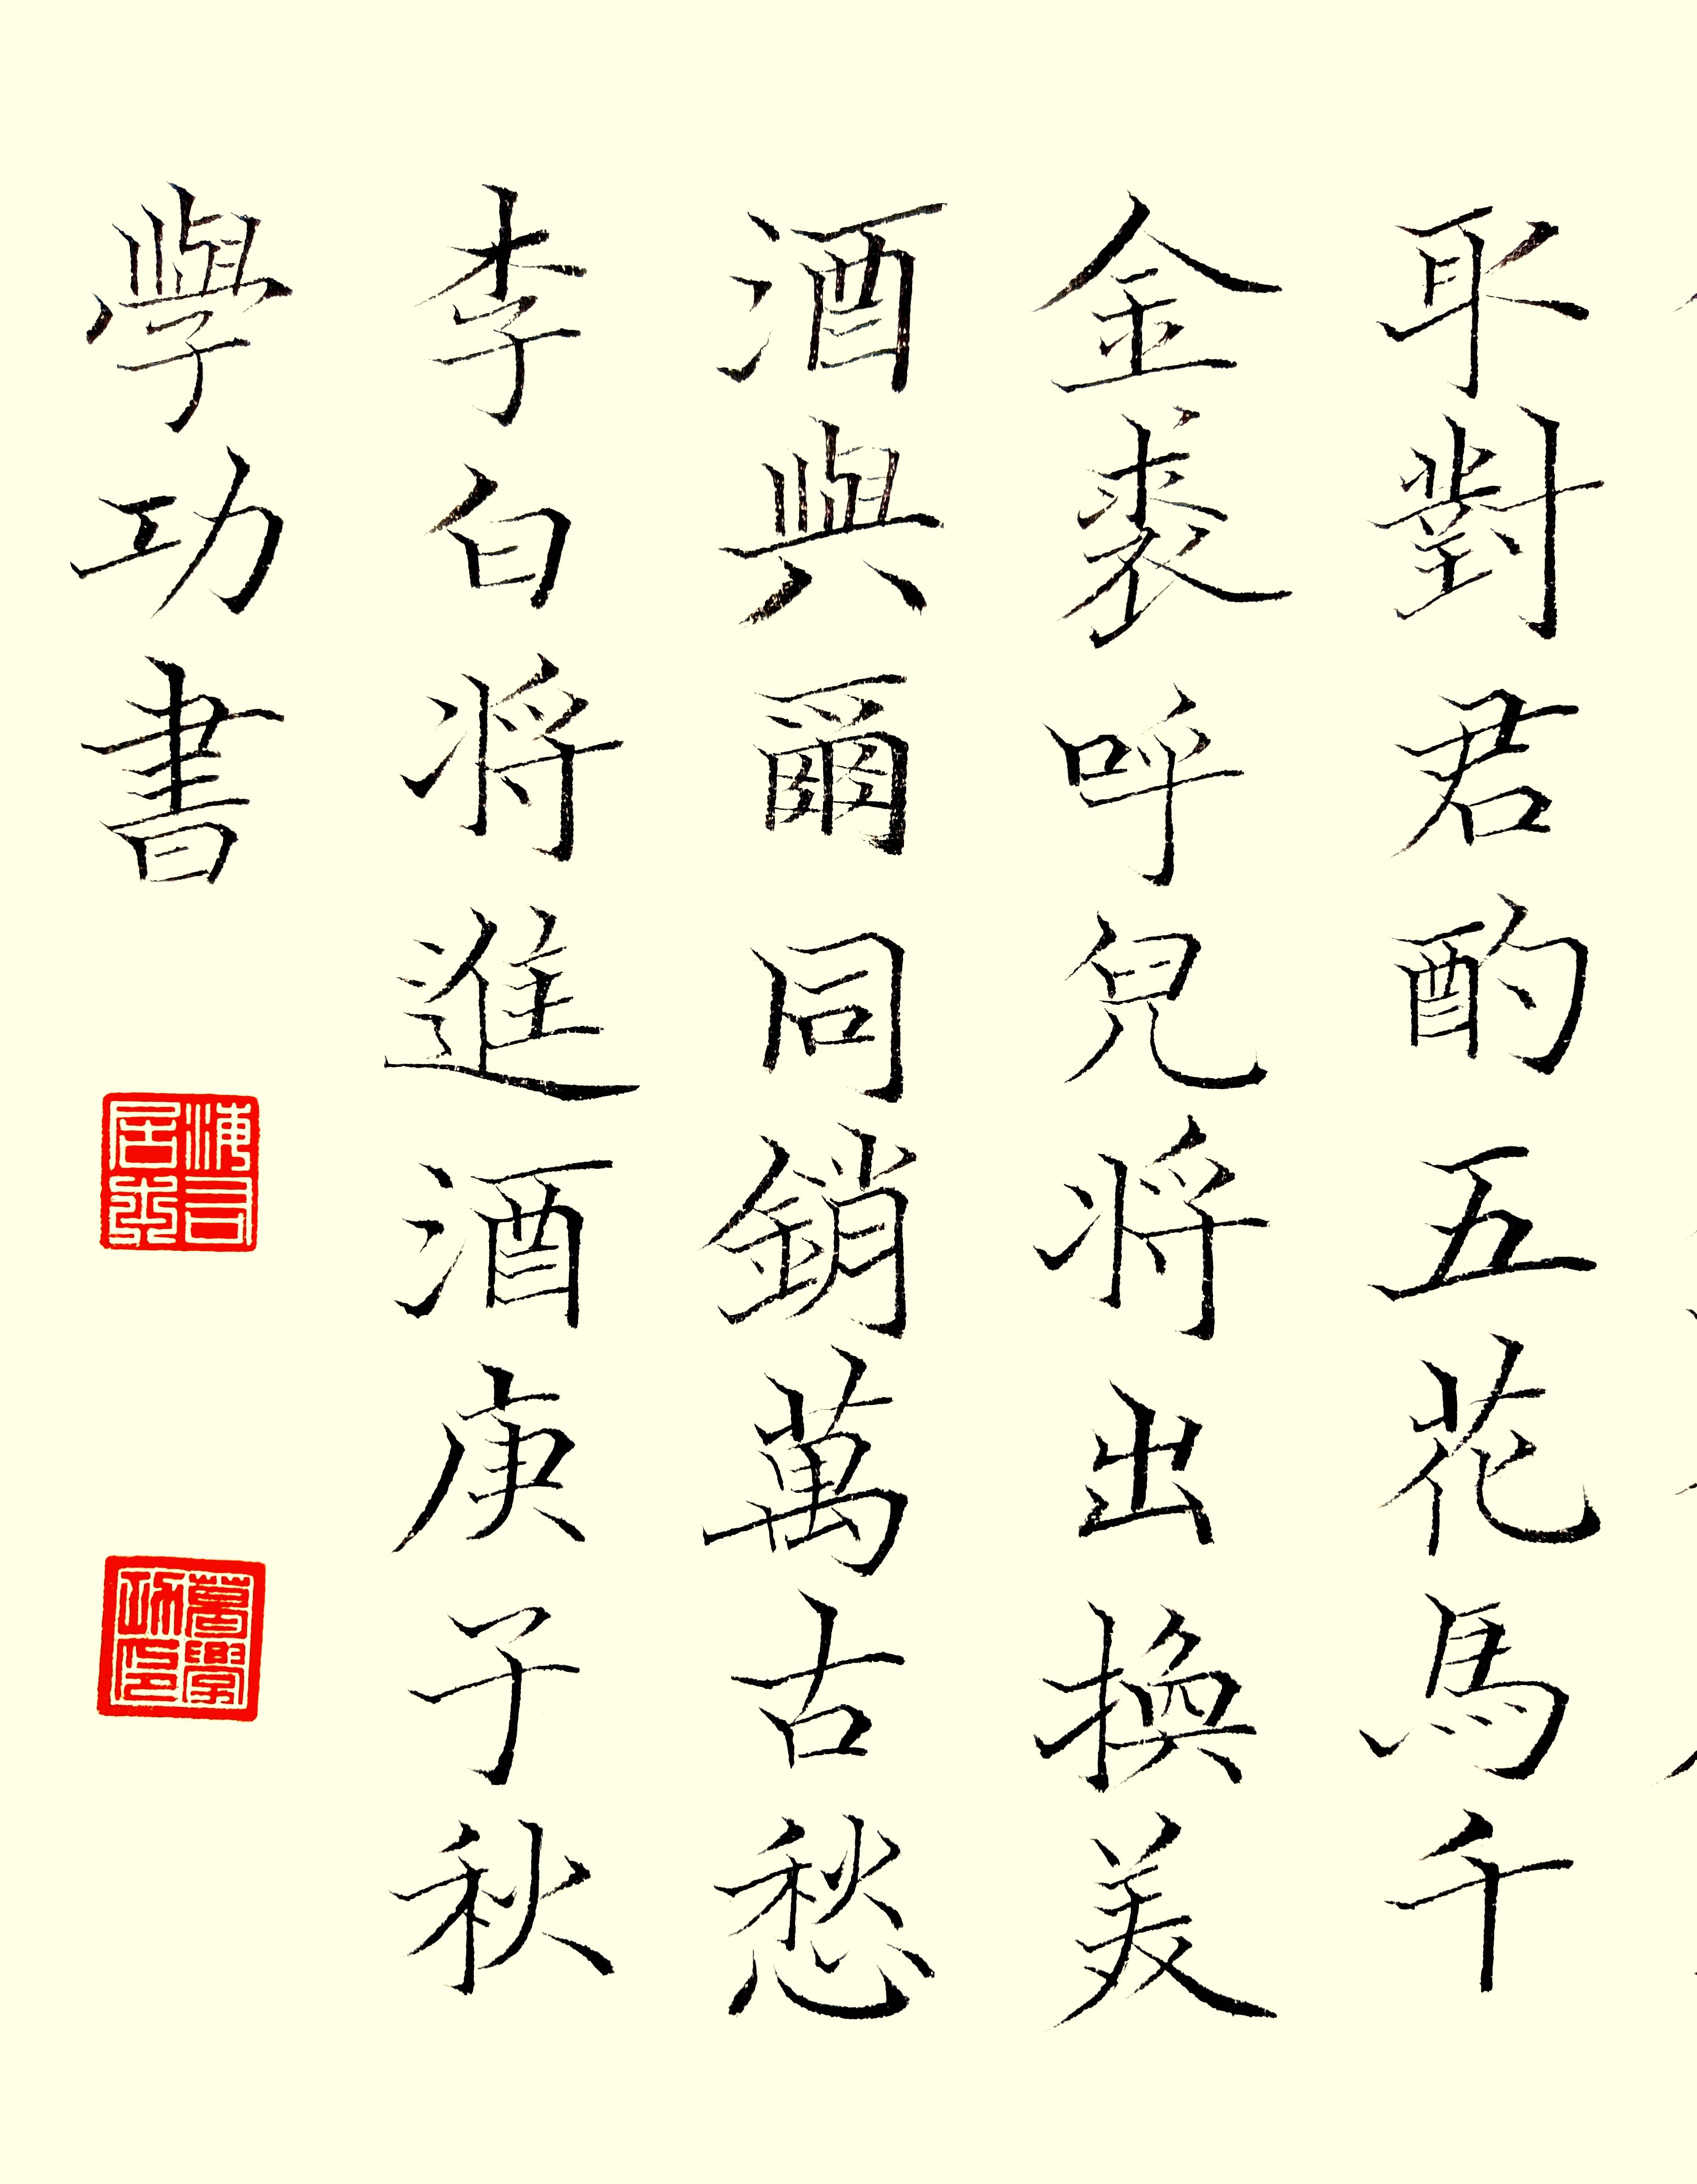 取對君酌五花馬千
金裘呼兒将出換美
酒與爾同銷萬古愁
李白将進酒庚子秋
學功書